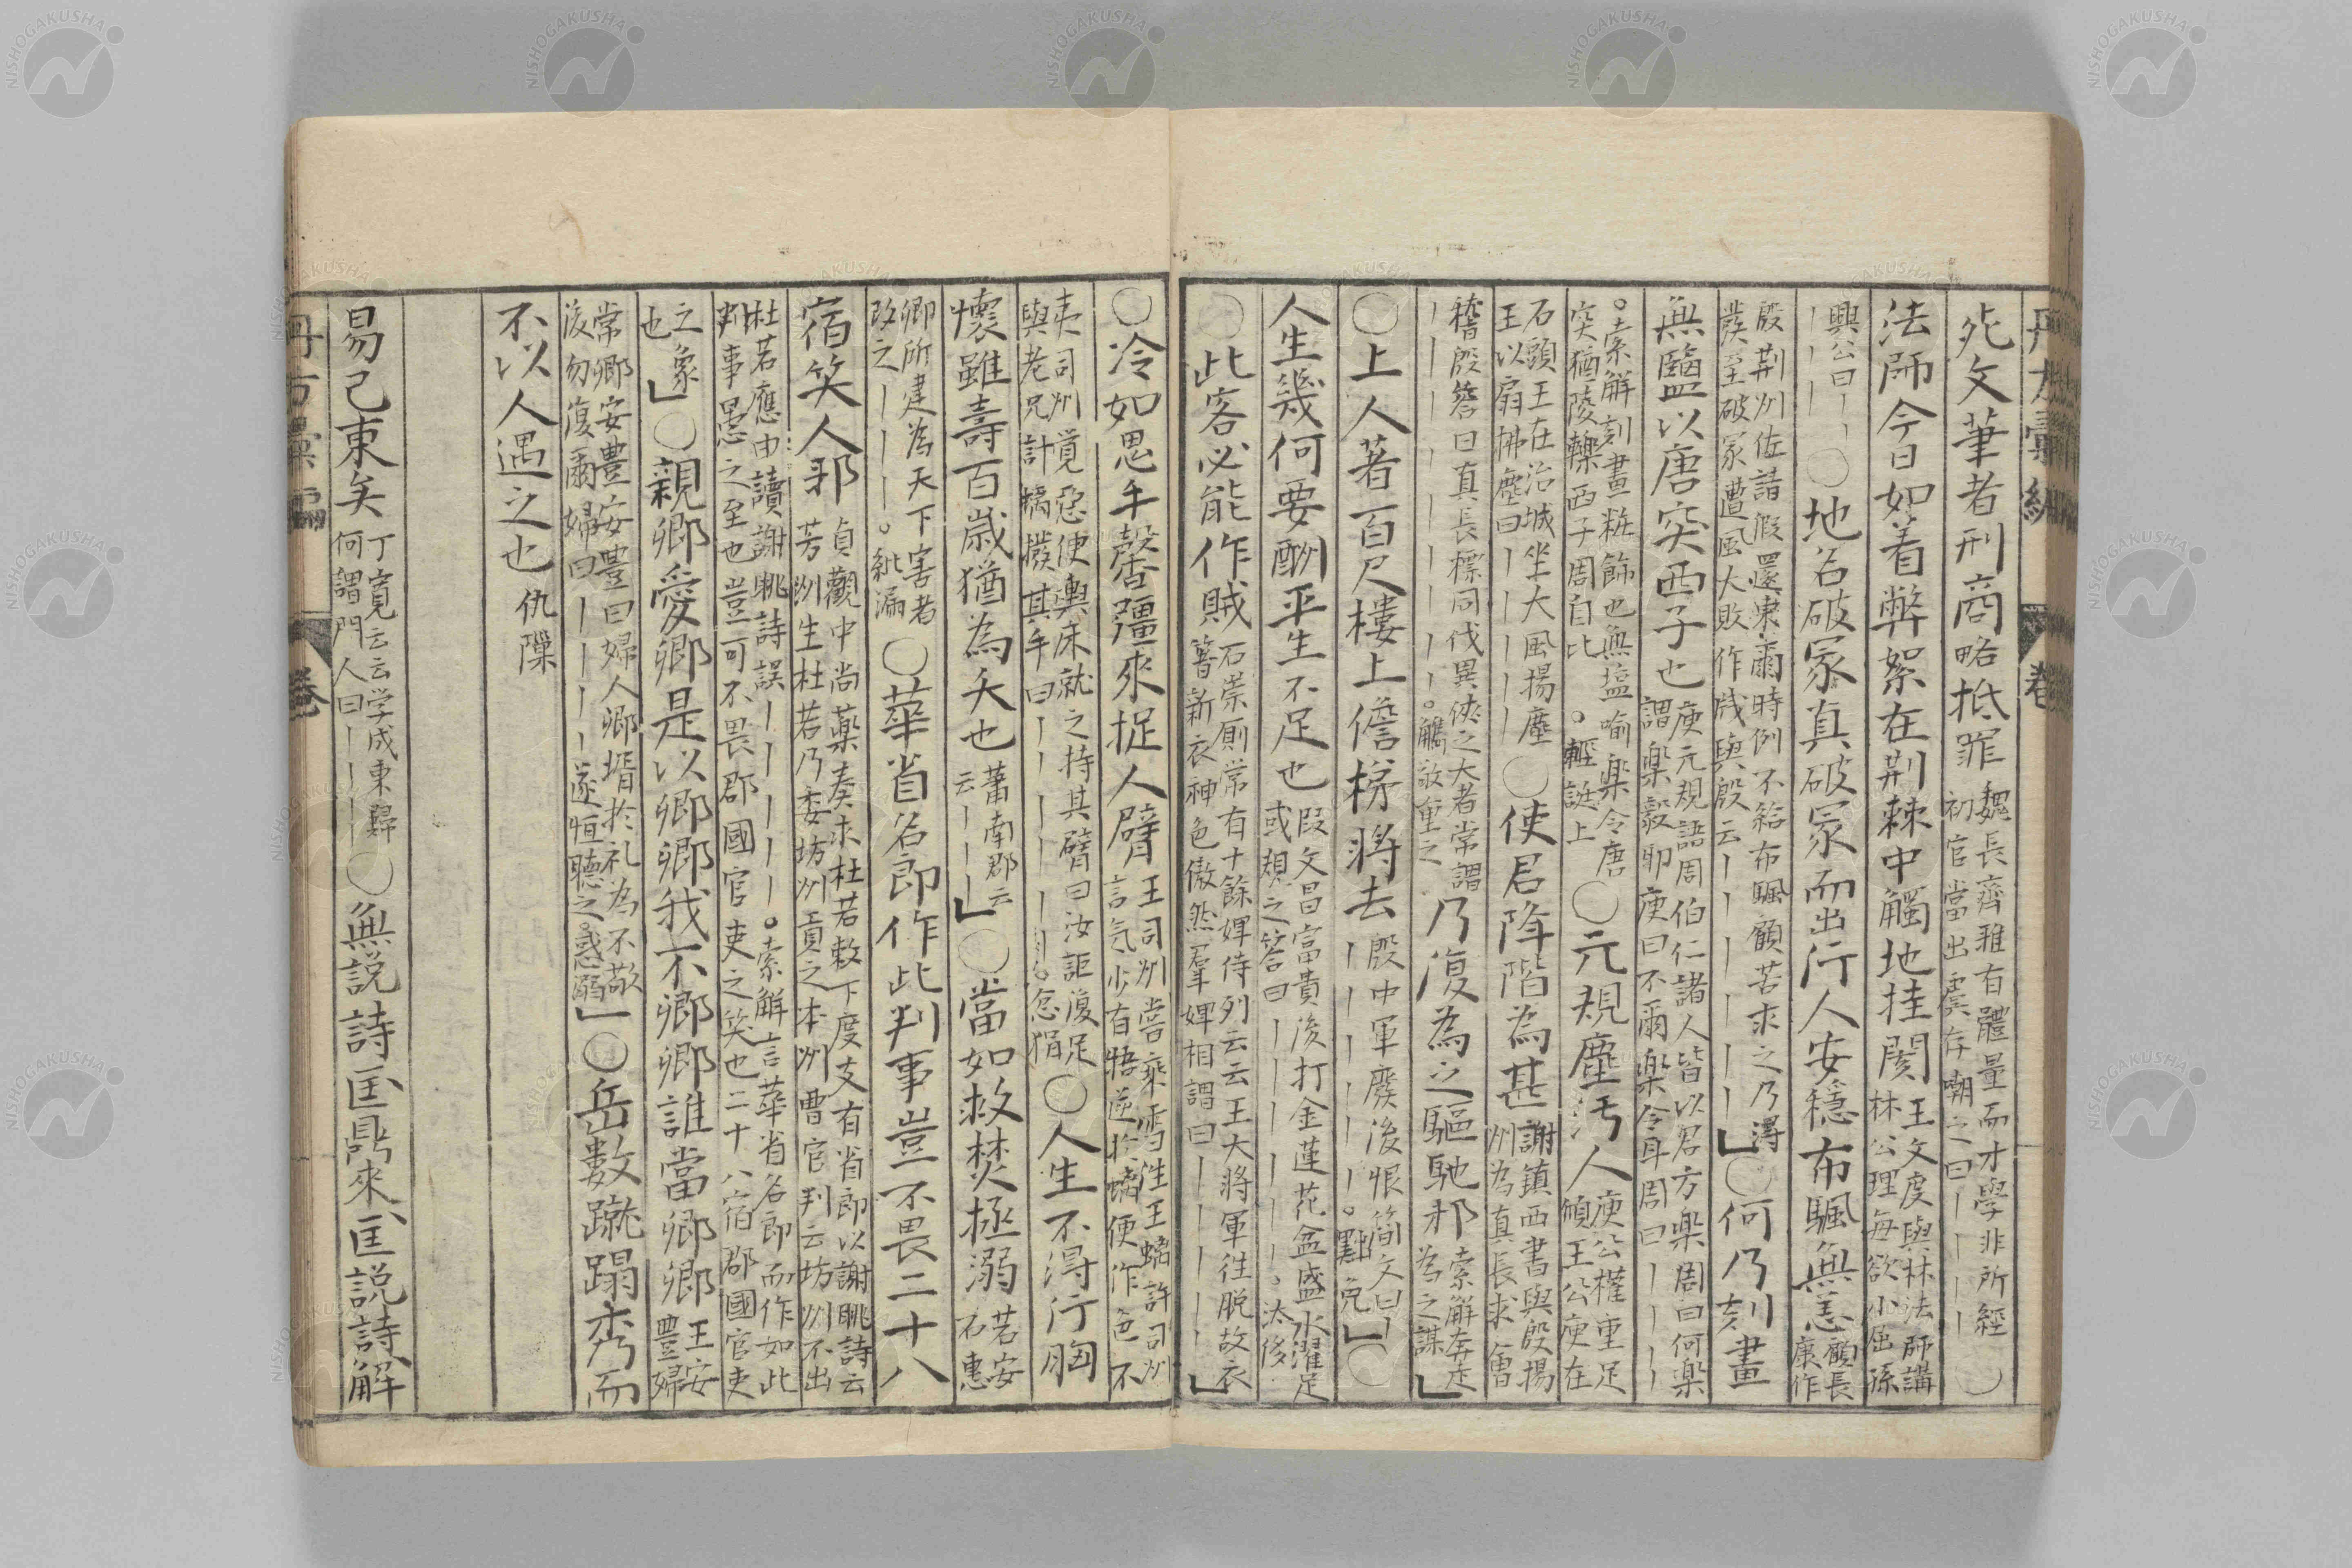 死文筆者刑商略抵罪 魏長齊雅有體量而才學非所經 初官當出虞存嘲之曰丨丨丨丨 ○
法師今日如着弊絮在荆棘中觸地挂閡 王文度與林法師講 林公理每欲小屈孫
興公曰丨丨丨丨 ○地名破冢真破冢而出行人安穩布颿無恙 顧長 康作
殷荆州佐請假還東爾時例不給布颿顧苦求之乃得 發至破冢遭風大敗作牋與殷云丨丨丨丨丨丨 ○何乃刻畫
無鹽以唐突西子也 庾元規語周伯仁諸人皆以君方樂周曰何樂 謂樂毅耶庾曰不爾樂令耳周曰丨丨丨
。索解刻畫粧飾也無塩喻樂令唐 突猶陵轢西子周自比。輕詆上 ○元規塵汚人 庾公權重足 傾王公庾在
石頭王在冶城坐大風揚塵 王以扇拂塵曰丨丨丨丨丨 ○使君降階為甚 謝鎮西書與殷揚 州為真長求會
稽殷答曰真長標同伐異俠之大者常謂 丨丨丨丨丨丨丨。觴敬重之 乃復為之驅馳邪 索解奔走 為之謀
○上人著百尺樓上儋梯將去 殷中軍廢後恨簡文曰丨 丨丨丨丨丨丨。黜免 ○
人生幾何要酬平生不足也 段文昌富貴後打金蓮花盆盛水濯足 或規之答曰丨丨丨丨丨丨。汰侈
○此客必能作賊 石崇厠常有十餘婢侍列云云王大將軍往脱故衣 著新衣神色傲然羣婢相謂曰丨丨丨丨丨
○冷如思手馨彊來捉人臂 王司州嘗乘雪往王螭許司州 言気少有牾逆於螭便作色不
夷司州覚惡便輿床就之持其臂曰汝詎復足 與老兄計螭撥其手曰丨丨丨丨丨。忿狷 ○人生不得行胸
懷雖壽百歳猶為夭也 蕭南郡云 云丨丨丨 ○當如救焚拯溺 若安 石惠
卿所建為天下害者 改之丨丨丨丨。紕漏 ○華省名郎作此判事豈不畏二十八
宿笑人邪 貞觀中尚藥奏求杜若敕下度支有省郎以謝眺詩云 芳洲生杜若乃委坊州貢之本州曹官判云坊州不出
杜若應由讀謝眺詩誤丨丨丨丨丨。索解言華省名郎而作如此 判事愚之至也豈可不畏郡國官吏之笑也二十八宿郡國官吏
之象 也 ○親卿愛卿是以卿卿我不卿卿誰當卿卿 王安 豊婦
常卿安豊安豊曰婦人卿壻於礼為不敬 後勿復爾婦曰丨丨丨丨丨遂恒聽之。惑溺 ○岳數蹴蹋秀而
不以人遇之也 仇隟
易已東矣 丁寛云云学成東歸 何謂門人曰丨丨丨丨 ○無説詩匡鼎來匡説詩解